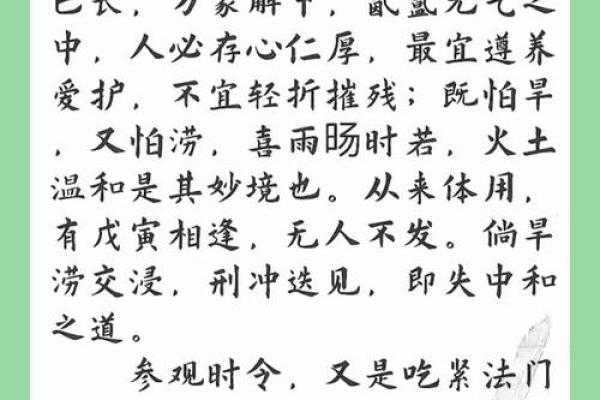 长，万象解，氤氲元气之
中，人必存心仁厚，最宜遵养
爱护，不宜轻折摧残；既怕旱
，又怕涝，喜雨旸时若，火土
温和是其妙境也。从来体用，
有戊寅相逢，无人不发。倘旱
涝交浸，刑冲迭见，即失中和
之道。
参观时令，又是吃紧法门